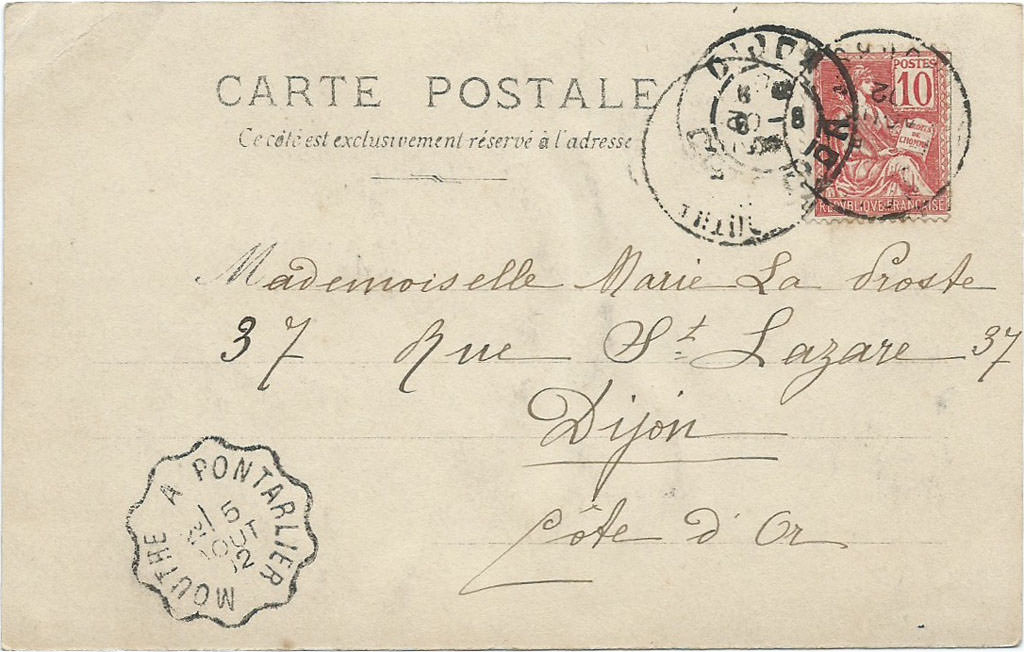 CARTE POSTALE
Ce côté est exclusivement réservé à l'adresse
POSTES
10
DROITS DE L'HOMME
REPVBLIQVE FRANÇAISE
DIJON
Mademoiselle Marie La Proste
37 Rue St Lazare 37
Dijon
Côte d'Or
MOUTHE A PONTARLIER
5
AOUT
02